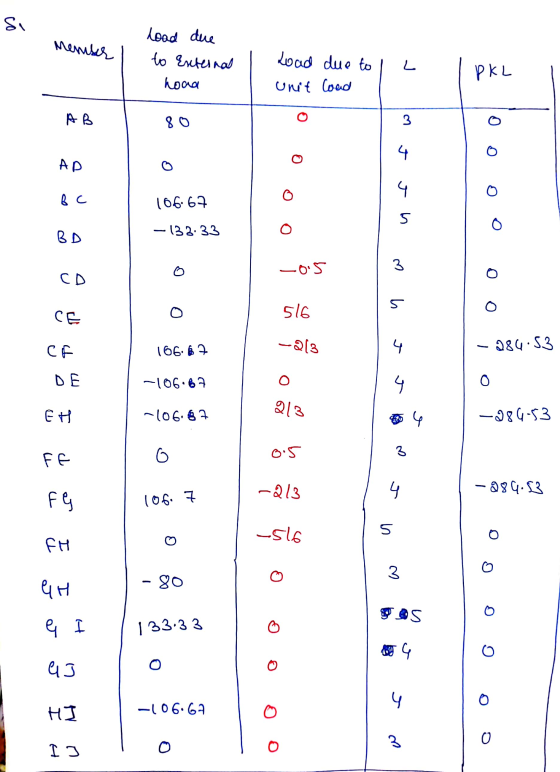 S1
Member | Load due to External Load | Load due to unit load | L | PKL
AB | 80 | 0 | 3 | 0
AD | 0 | 0 | 4 | 0
BC | 106.67 | 0 | 4 | 0
BD | -133.33 | 0 | 5 | 0
CD | 0 | -0.5 | 3 | 0
CE | 0 | 5/6 | 5 | 0
CF | 106.67 | -2/3 | 4 | -284.53
DE | -106.67 | 0 | 4 | 0
EH | -106.67 | 2/3 | 4 | -284.53
FE | 0 | 0.5 | 3
FG | 106.7 | -2/3 | 4 | -284.53
FH | 0 | -5/6 | 5 | 0
GH | -80 | 0 | 3 | 0
GI | 133.33 | 0 | 5 | 0
GJ | 0 | 0 | 4 | 0
HI | -106.67 | 0 | 4 | 0
IJ | 0 | 0 | 3 | 0